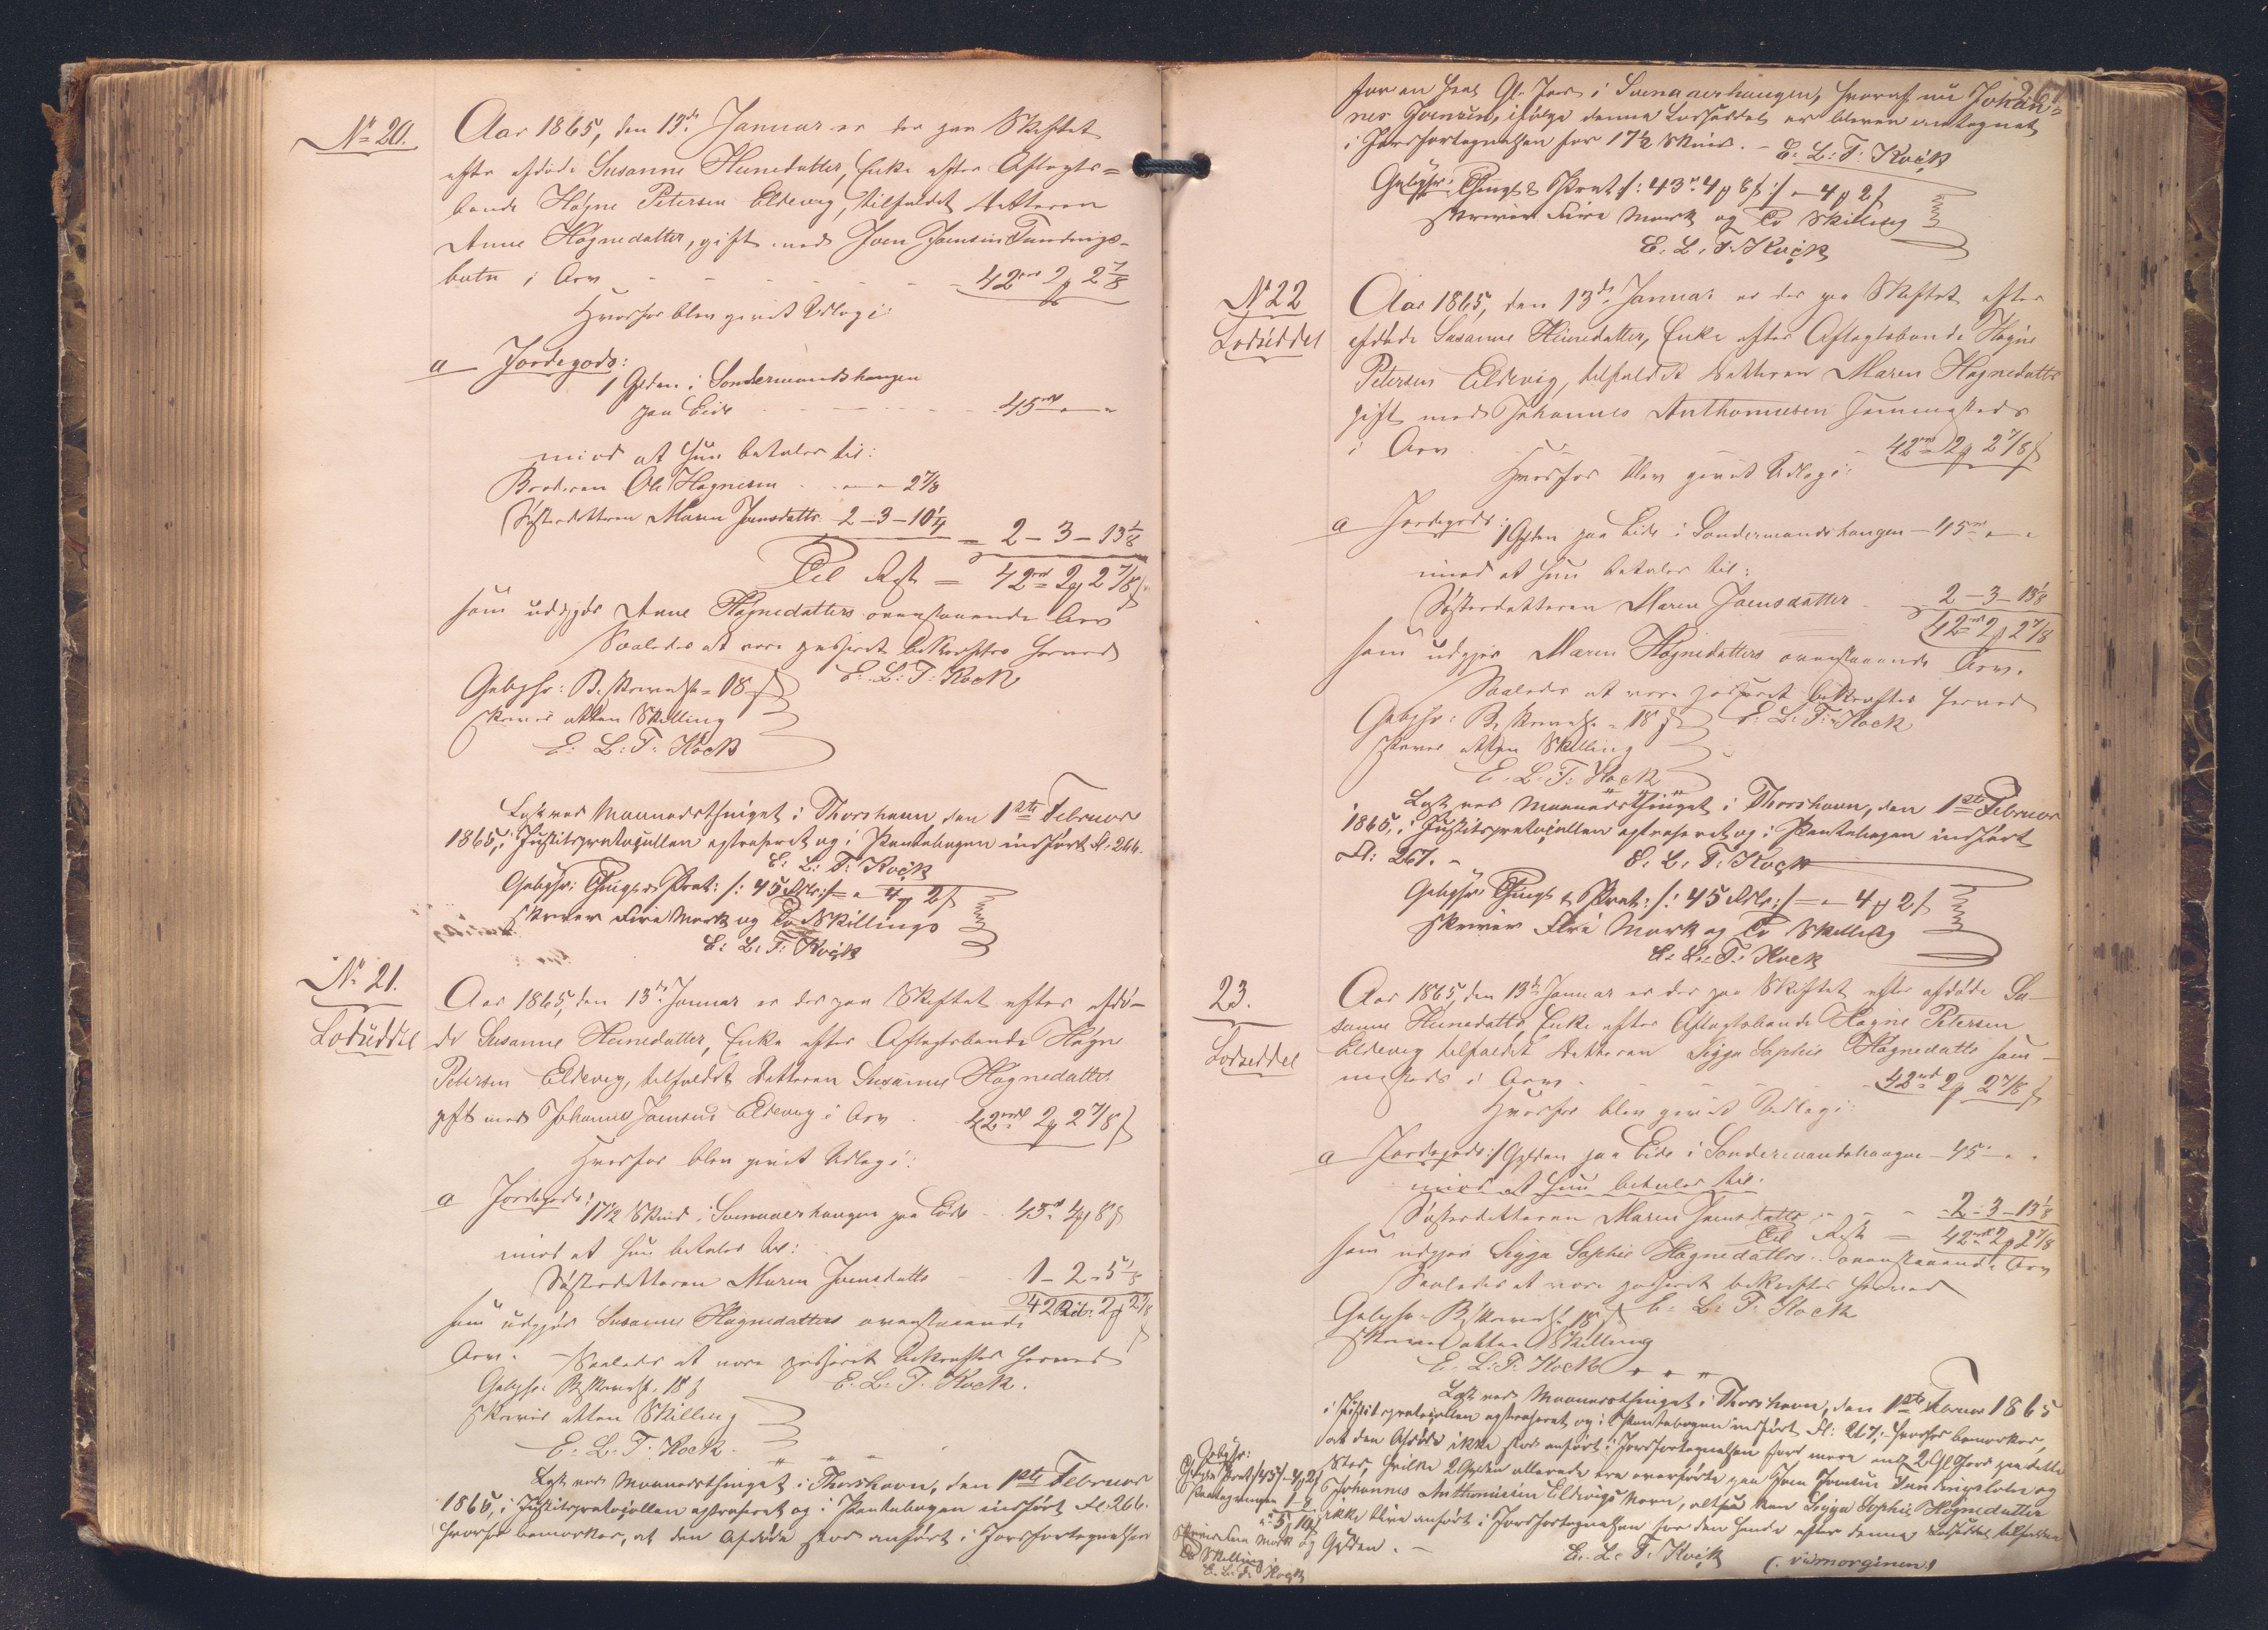 No 20.
Aar 1865, den 13de Januar er der paa Skiftet
efter afdøde Susanne Heinedatter, Enke efter Aftægts=
bonde Høgne Petersen Eldevig, tilfaldet Datteren
Anne Høgnedatter, gift med Joen Joensen Funding-
botn i Arv - - - - - 42rd 2 2 7/8
Hvorfor blev givet Udlæg i:
a Jordegods:
1 Gylden i Sondermandshaugen
paa Eide - - - - - 45rd " "
imod at hun betaler til:
Broderen Ole Høgnesen - " - " - 2 7/8
Søsterdatteren Maren Joensdatter 2 - 3 - 10 1/4 = 2 - 3 - 13 1/8
Til Rest = 42rd 2 2 7/8
som udgjør Anne Høgnedatters ovenstaaende Arv
Saaledes at være passeret bekræftes herved
E. L. T. Kock
Gebyhr: Beskrivelse = 18
skriver atten Skilling
E: L: T: Kock
Læst ved Maanedsthinget i Thorshavn, den 1ste Februar
1865, i Justitsprotocollen extraheret og i Pantebogen indført Fl: 266.
E: L: T: Kock
Gebyhr: Thingl & Prot: /: 45 Rdlr :/ = " 4 2
skriver Fire Mark og To Skillings
E: L: T: Kock
No 21.
Lodseddel
Aar 1865, den 13de Januar er der paa Skiftet efter afdø-
de Susanne Heinedatter, Enke efter Aftægtsbonde Høgne
Petersen Eldevig, tilfaldet Datteren Susanne Høgnedatter
gift med Johannes Joensen Eldevig i Arv - 42rd 2 2 7/8
Hvorfor blev givet Udlæg i:
a Jordegods:
17 1/2 Skind i haugen paa Eide - 43rd 4 8
imod at hun betaler til:
Søsterdatteren Maren Joensdatter - 1 - 2 - 5 1/8
42 Rd. 2 2 7/8
som udgjør Susanne Høgnedatters ovenstaaende
Arv. - Saaledes at være passeret bekræftes herved
E. L. T. Kock.
Gebyhr: Beskrivelse. 18
skriver atten Skilling
E. L. T. Kock.
Læst ved Maanedsthinget i Thorshavn, den 1ste Februar
1865, i Justitsprotocollen extraheret og i Pantebogen indført Fl: 266.
hvorfor bemærkes, at den Afdøde staar anført i Jordfortegnelsen
for en Gl. Jord i haugen, hvoraf nu Johan=
nes Joensen, ifølge denne Lodseddel er bleven antegnet
i Jordfortegnelsen for 17 1/2 Skind. - E. L: T: Kock
Gebyhr: Thingl & Prot /: 43rd 4 8 :/ = 4 2
skriver Fire Mark og To Skilling
E. L. T. Kock
No 22
Lodseddel
Aar 1865, den 13de Januar er der paa Skiftet efter
afdøde Susanne Heinedatter, Enke efter Aftægtsbonde Høgne
Petersen Eldevig, tilfaldet Datteren Maren Høgnedatter
gift med Johannes Anthoniesen sammesteds
i Arv - 42rd 2 2 7/8
Hvorfor blev givet Udlæg i:
a Jordegods:
1 Gylden paa Eide i Sondermandshaugen - 45rd " "
imod at hun betaler til:
Søsterdatteren Maren Joensdatter - 2 - 3 - 13 1/8
42rd 2 2 7/8
som udgjør Maren Høgnedatters ovenstaaende Arv.
Saaledes at være passeret bekræftes herved
Gebyhr: Beskrivelse - 18 E. L. T. Kock
skriver atten Skilling
E. L. T. Kock
Læst ved Maanedsthinget i Thorshavn, den 1ste Februar
1865, i Justitsprotocollen extraheret og i Pantebogen indført
Fl: 267. - E. L. T. Kock
Gebyhr: Thingl & Prot: /: 45 Rdlr :/ = " 4 2
skriver Fire Mark og To Skilling
E. L. T. Kock
23.
Lodseddel
Aar 1865, den 13de Januar er der paa Skiftet efter afdøde Su-
sanne Heinedatter, Enke efter Aftægtsbonde Høgne Petersen
Eldevig tilfaldet Datteren Sigga Sophie Høgnedatter sam-
mesteds i Arv - - - 42rd 2 2 7/8
Hvorfor blev givet Udlæg i:
a Jordegods: 1 Gylden paa Eide i Sondermandshaugen - 45 " "
imod at hun betaler til:
Søsterdatteren Maren Joensdatter - - - 2 - 3 - 13 1/8
Til Rest = 42rd 2 2 7/8
som udgjør Sigga Sophie Høgnedatters ovenstaaende Arv
Saaledes at være passeret bekræftes herved
Gebyhr. Beskrivelse 18 E. L. T. Kock
skriver atten Skilling
E. L. T. Kock
Læst ved Maanedsthinget i Thorshavn, den 1ste Februar 1865
i Justitsprotocollen extraheret og i Pantebogen indført Fl: 267; hvorfor bemærkes,
at den Afdøde ikke staar anført i Jordfortegnelsen for mere end 2 Gl Jord paa dette
Sted, hvilke 2 Gylden allerede ere overførte paa Joen Joensen Fundingsbotn og
Johannes Anthoniesen Eldevigs Navn, altsaa kan Sigga Sophie Høgnedatter
ikke blive anført i Jordfortegnelsen for den hende efter denne Lodseddel tilfaldne
Gylden. -
E. L. T. Kock (: vid margenen)
Gebyhr:
Thingl & Prot /45/ - 4 2
1 - 8
" 5 10
skriver Fem Mark og
Skilling
E. L. T. Kock